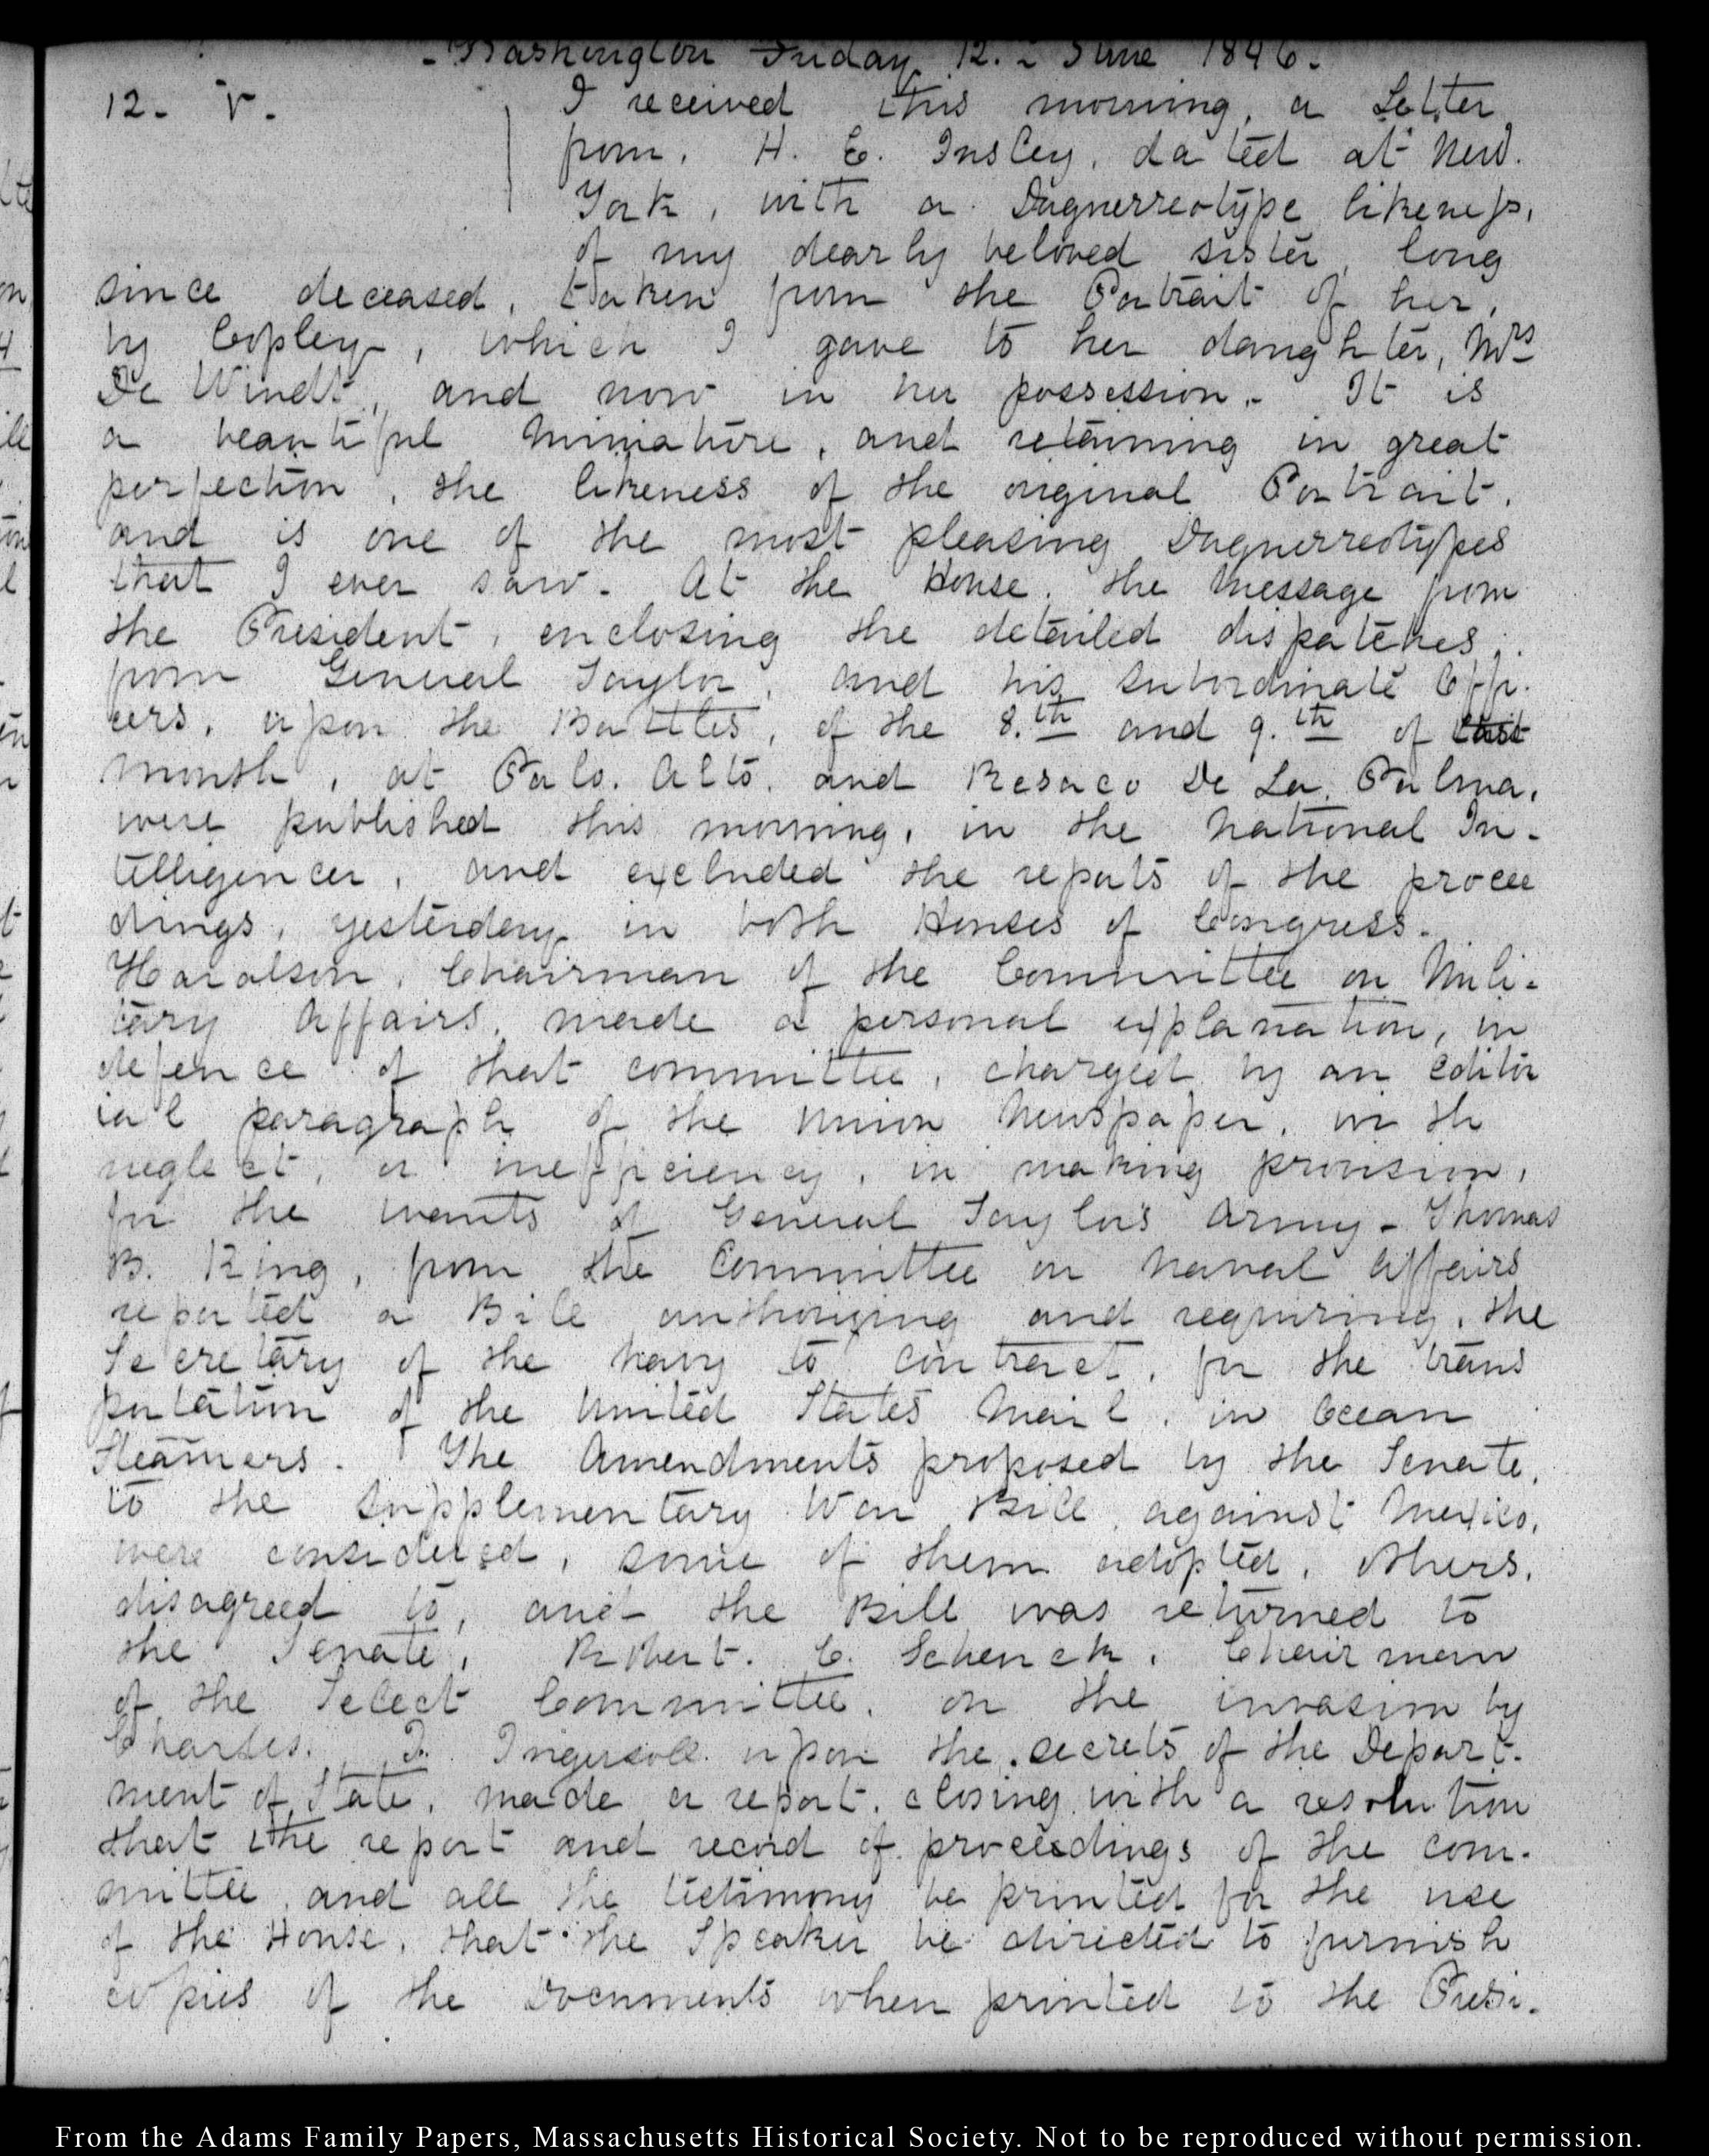 - Washington Friday 12. - June 1846.
12 - V.
I received this morning, a Letter
from, H. E. Insley, dated at New.
York, with a Daguerreotype likeness,
of my dearly beloved sister, long
since deceased, taken from the Portrait of her,
by Copley, which I gave to her daughter, Mrs
De Windt, and now in her possession. - It is
a beautiful Miniature, and retaining in great
perfection, the likeness of the original Portrait.
and is one of the most pleasing Daguerreotypes
that I ever saw. At the House. the Message from
the President, enclosing the detailed dispatches.
from General Taylor, and his subordinate Offi-
cers, upon the Battles, of the 8.th and 9.th of last
month, at Palo. Alto. and Resaco De La. Palma,
were published this morning, in the National In-
telligencer, and excluded the reports of the procee
dings, yesterday in both Houses of Congress.
Haralson, Chairman of the Committee on Mili-
tary Affairs, made a personal explanation, in
defence of that committee, charged by an editor
ial paragraph of the Union Newspaper, with
neglect, or inefficiency, in making provision,
for the wants of General Taylor's Army - Thomas
B. King, from the Committee on Naval Affairs
reported a Bill authorizing and requiring, the
Secretary of the Navy to contract, for the trans
portation of the United States Mail, in Ocean
Steamers. The Amendments proposed by the Senate,
to the Supplementary War Bill against Mexico,
were considered, some of them adopted, others,
disagreed to, and the Bill was returned to
the Senate, Robert. C. Schenck, Chairman
of the Select Committee, on the invasion by
Charles. J. Ingersoll upon the secrets of the Depart-
ment of State, made a report, closing with a resolution
that the report and record of proceedings of the com-
mittee, and all the testimony be printed for the use
of the House, that the Speaker be directed to furnish
copies of the Documents when printed to the Presi-
From the Adams Family Papers, Massachusetts Historical Society. Not to be reproduced without permission.